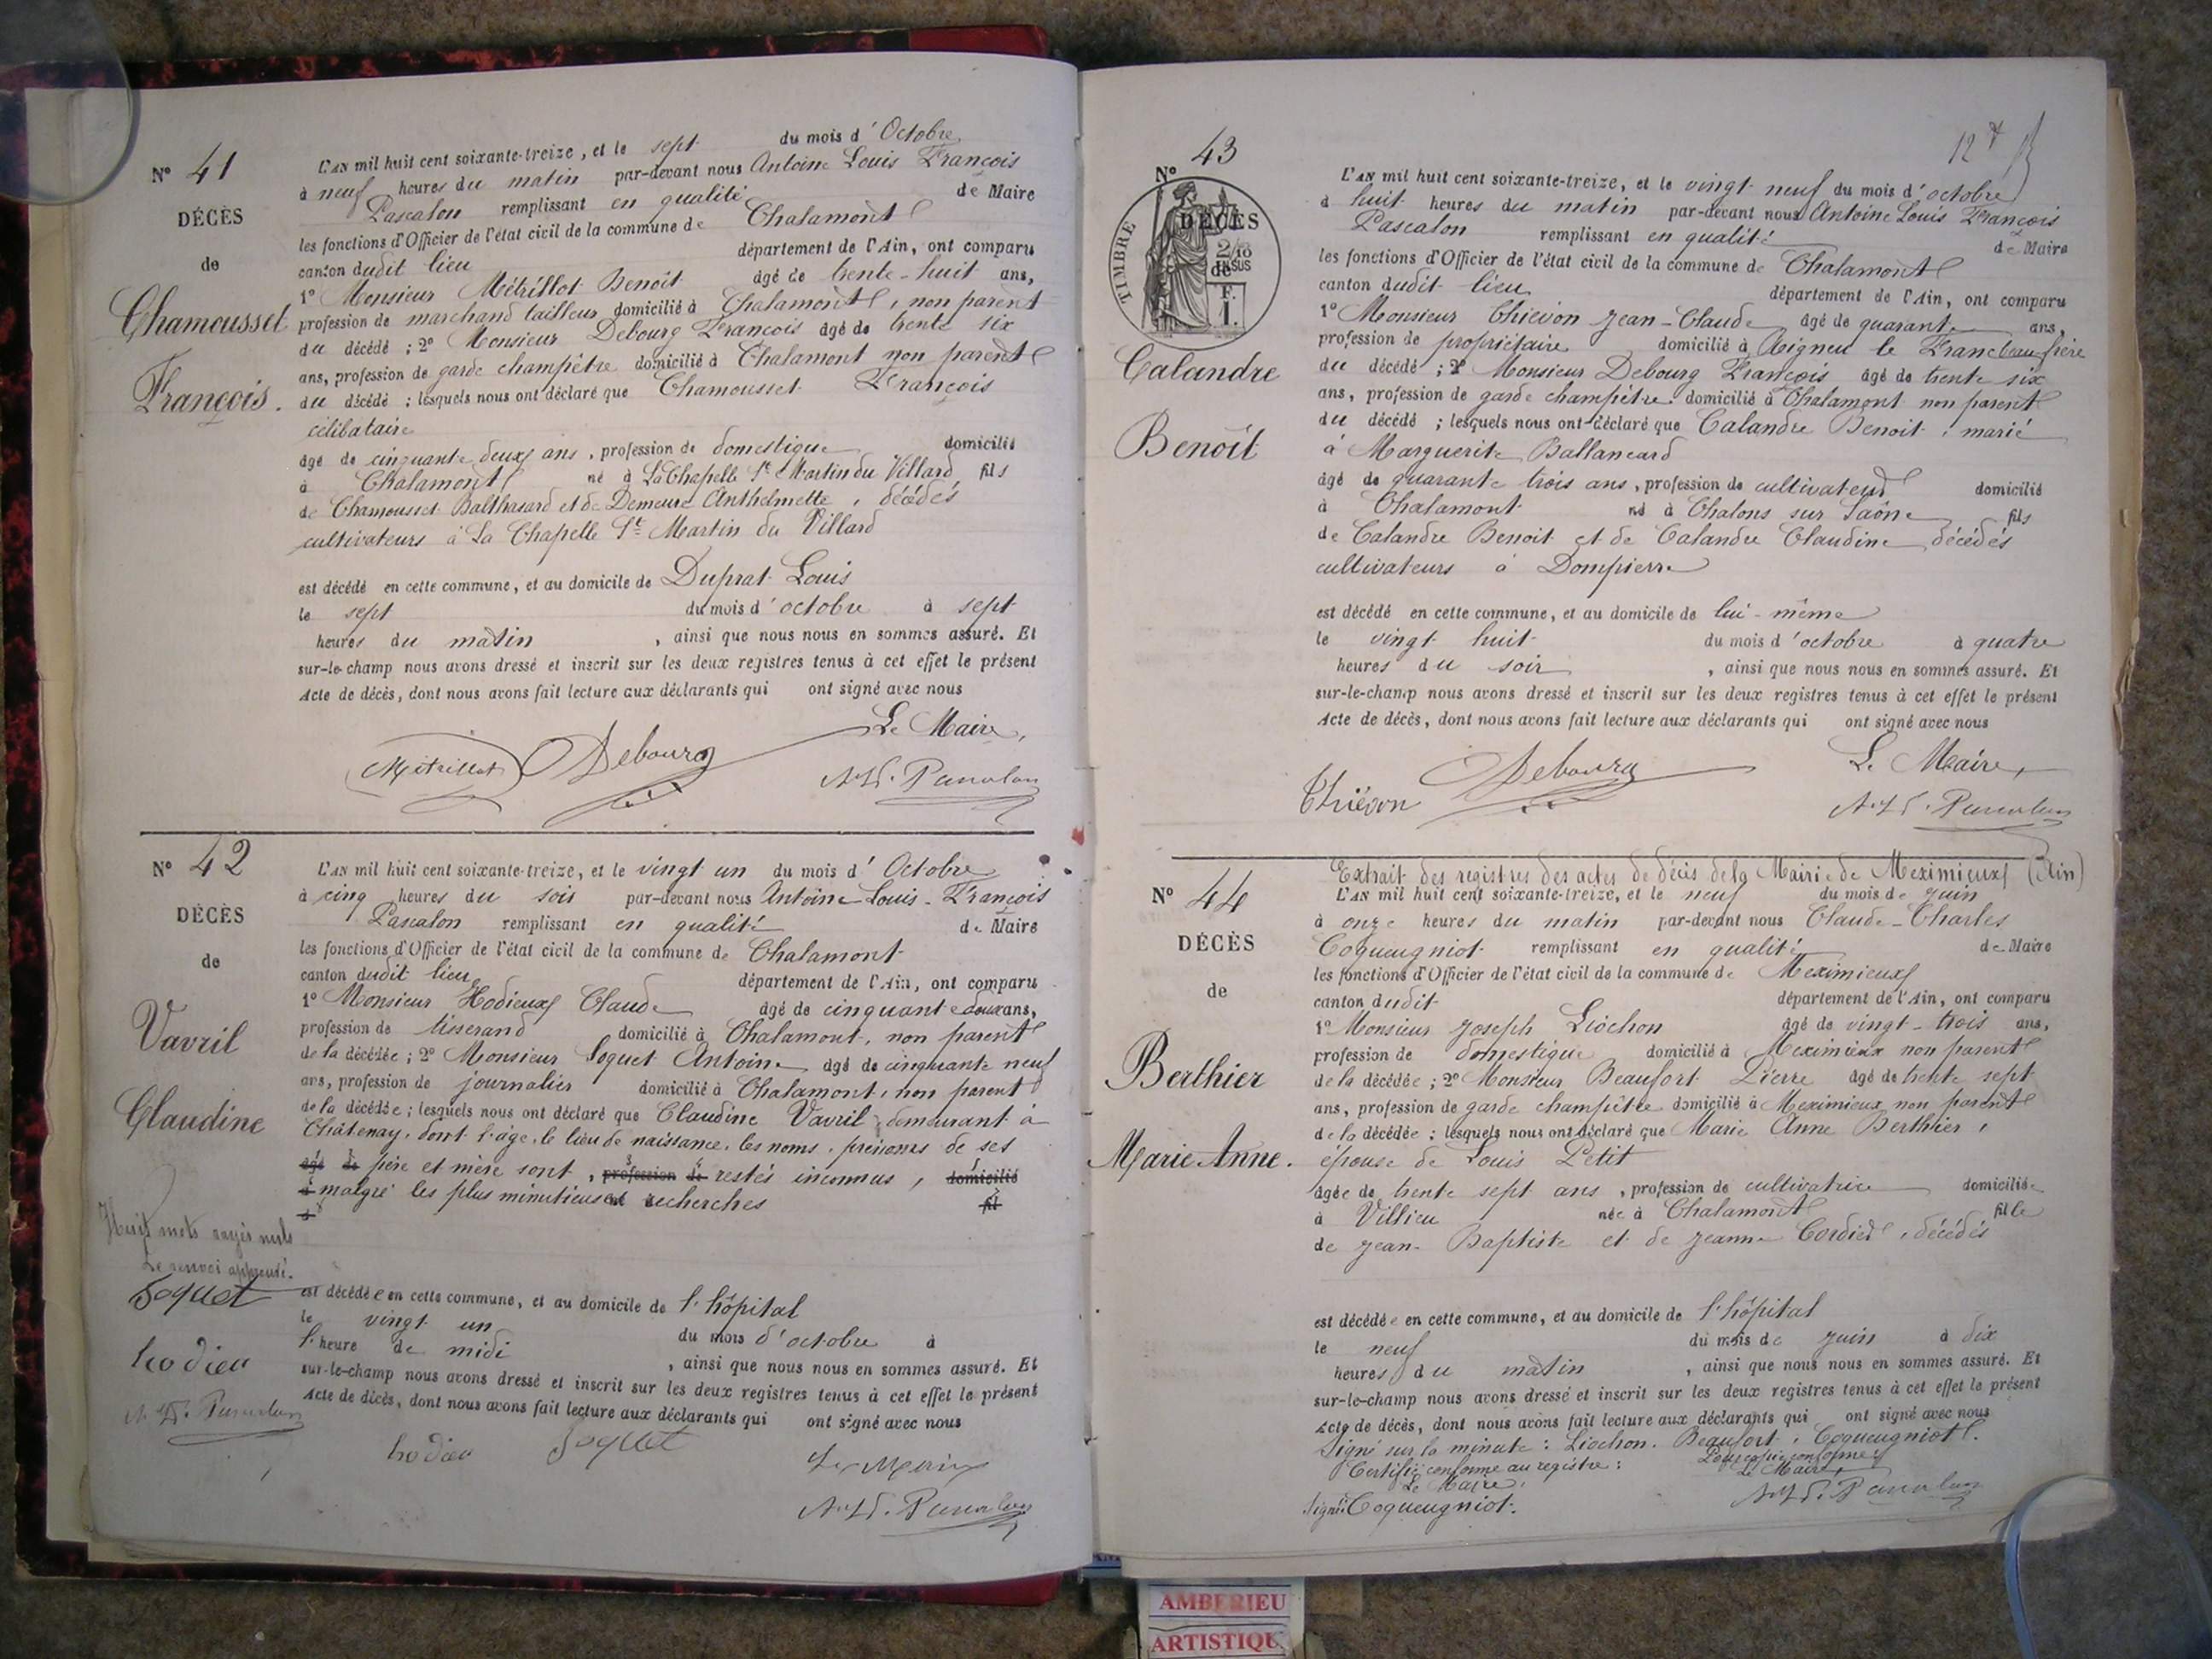 N° 41
DÉCÈS
de
Chamousset
François.
L'AN mil huit cent soixante-treize, et le sept du mois d'Octobre
à neuf heures du matin par-devant nous Antoine Louis François
Pascalon remplissant en qualité de Maire
les fonctions d'Officier de l'état civil de la commune de Chalamont
canton dudit lieu département de l'Ain, ont comparu
1° Monsieur Métrillot Benoît âgé de trente-huit ans,
profession de marchand tailleur domicilié à Chalamont, non parent
du décédé ; 2° Monsieur Debourg François âgé de trente six
ans, profession de garde champêtre domicilié à Chalamont non parent
du décédé ; lesquels nous ont déclaré que Chamousset François
célibataire
âgé de cinquante deux ans, profession de domestique domicilié
à Chalamont né à La Chapelle St Martin du Villard fils
de Chamousset Balthasard et de Demeure Anthelmette, décédés
cultivateurs à La Chapelle St Martin du Villard
est décédé en cette commune, et au domicile de Duprat Louis
le sept du mois d'octobre à sept
heures du matin, ainsi que nous nous en sommes assuré. Et
sur-le-champ nous avons dressé et inscrit sur les deux registres tenus à cet effet le présent
Acte de décès, dont nous avons fait lecture aux déclarants qui ont signé avec nous
Le Maire,
Métrillot Debourg
N° 42
DÉCÈS
de
Vavril
Claudine
L'AN mil huit cent soixante-treize, et le vingt un du mois d'Octobre
à cinq heures du soir par-devant nous Antoine Louis-François
Pascalon remplissant en qualité de Maire
les fonctions d'Officier de l'état civil de la commune de Chalamont
canton dudit lieu département de l'Ain, ont comparu
1° Monsieur Hodieux Claude âgé de cinquante deux ans,
profession de tisserand domicilié à Chalamont, non parent
de la décédée ; 2° Monsieur Soquet Antoine âgé de cinquante neuf
ans, profession de journalier domicilié à Chalamont, non parent
de la décédée ; lesquels nous ont déclaré que Claudine Vavril, demeurant à
Châtenay, dont l'âge, le lieu de naissance, les noms, prénoms de ses
âgé de père et mère sont, profession de restés inconnus, domicilié
à malgré les plus minutieuses recherches fil
d
Huit mots rayés nuls
Le renvoi approuvé.
Soquet
hodieu
est décédée en cette commune, et au domicile de l'hôpital
le vingt un du mois d'octobre à
l'heure de midi, ainsi que nous nous en sommes assuré. Et
sur-le-champ nous avons dressé et inscrit sur les deux registres tenus à cet effet le présent
Acte de décès, dont nous avons fait lecture aux déclarants qui ont signé avec nous
hodieu Soquet
Le Maire
12e
N° 43
DÉCÈS
de
TIMBRE
2/10 EN SUS
F.
1.
Calandre
Benoît
L'AN mil huit cent soixante-treize, et le vingt neuf du mois d'octobre
à huit heures du matin par-devant nous Antoine Louis François
Pascalon remplissant en qualité de Maire
les fonctions d'Officier de l'état civil de la commune de Chalamont
canton dudit lieu département de l'Ain, ont comparu
1° Monsieur Thiévon Jean-Claude âgé de quarante ans,
profession de propriétaire domicilié à Rigneu le Franc beau-frère
du décédé ; 2° Monsieur Debourg François âgé de trente six
ans, profession de garde champêtre domicilié à Chalamont non parent
du décédé ; lesquels nous ont déclaré que Calandre Benoit, marié
à Marguerite Ballancard
âgé de quarante trois ans, profession de cultivateur domicilié
à Chalamont né à Chalons sur Saône fils
de Calandre Benoit et de Calandre Claudine décédés
cultivateurs à Dompierre
est décédé en cette commune, et au domicile de lui-même
le vingt huit du mois d'octobre à quatre
heures du soir, ainsi que nous nous en sommes assuré. Et
sur-le-champ nous avons dressé et inscrit sur les deux registres tenus à cet effet le présent
Acte de décès, dont nous avons fait lecture aux déclarants qui ont signé avec nous
Le Maire,
Thiévon Debourg
N° 44
DÉCÈS
de
Berthier
Marie Anne.
Extrait des registres des actes de décès de la Mairie de Meximieux (Ain)
L'AN mil huit cent soixante-treize, et le neuf du mois de Juin
à onze heures du matin par-devant nous Claude-Charles
Coqueugniot remplissant en qualité de Maire
les fonctions d'Officier de l'état civil de la commune de Meximieux
canton dudit département de l'Ain, ont comparu
1° Monsieur Joseph Liochon âgé de vingt-trois ans,
profession de domestique domicilié à Meximieux non parent
de la décédée ; 2° Monsieur Beaufort Pierre âgé de trente sept
ans, profession de garde champêtre domicilié à Meximieux non parent
de la décédée ; lesquels nous ont déclaré que Marie Anne Berthier,
épouse de Louis Petit
âgée de trente sept ans, profession de cultivatrice domiciliée
à Villieu née à Chalamont fille
de Jean-Baptiste et de Jeanne Cordier, décédés
est décédée en cette commune, et au domicile de l'hôpital
le neuf du mois de Juin à dix
heures du matin, ainsi que nous nous en sommes assuré. Et
sur-le-champ nous avons dressé et inscrit sur les deux registres tenus à cet effet le présent
Acte de décès, dont nous avons fait lecture aux déclarants qui ont signé avec nous
Signé sur la minute : Liochon. Beaufort, Coqueugniot.
Certifié conforme au registre : Pour copie conforme
Le Maire, Le Maire,
Signé : Coqueugniot.
AMBERIEU
ARTISTIQU